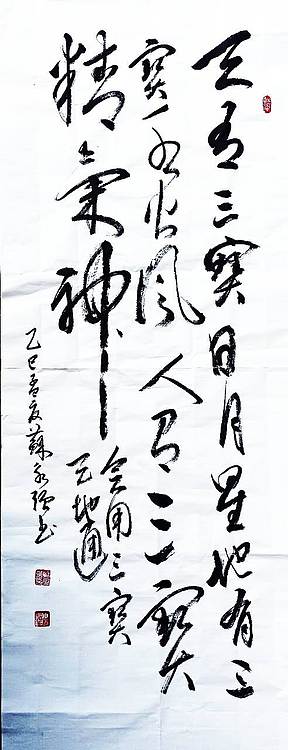 天有三寶日月星地有三
寶水火風人有三寶
精氣神
会用三寶
天地通
乙巳孟夏蘇永强书